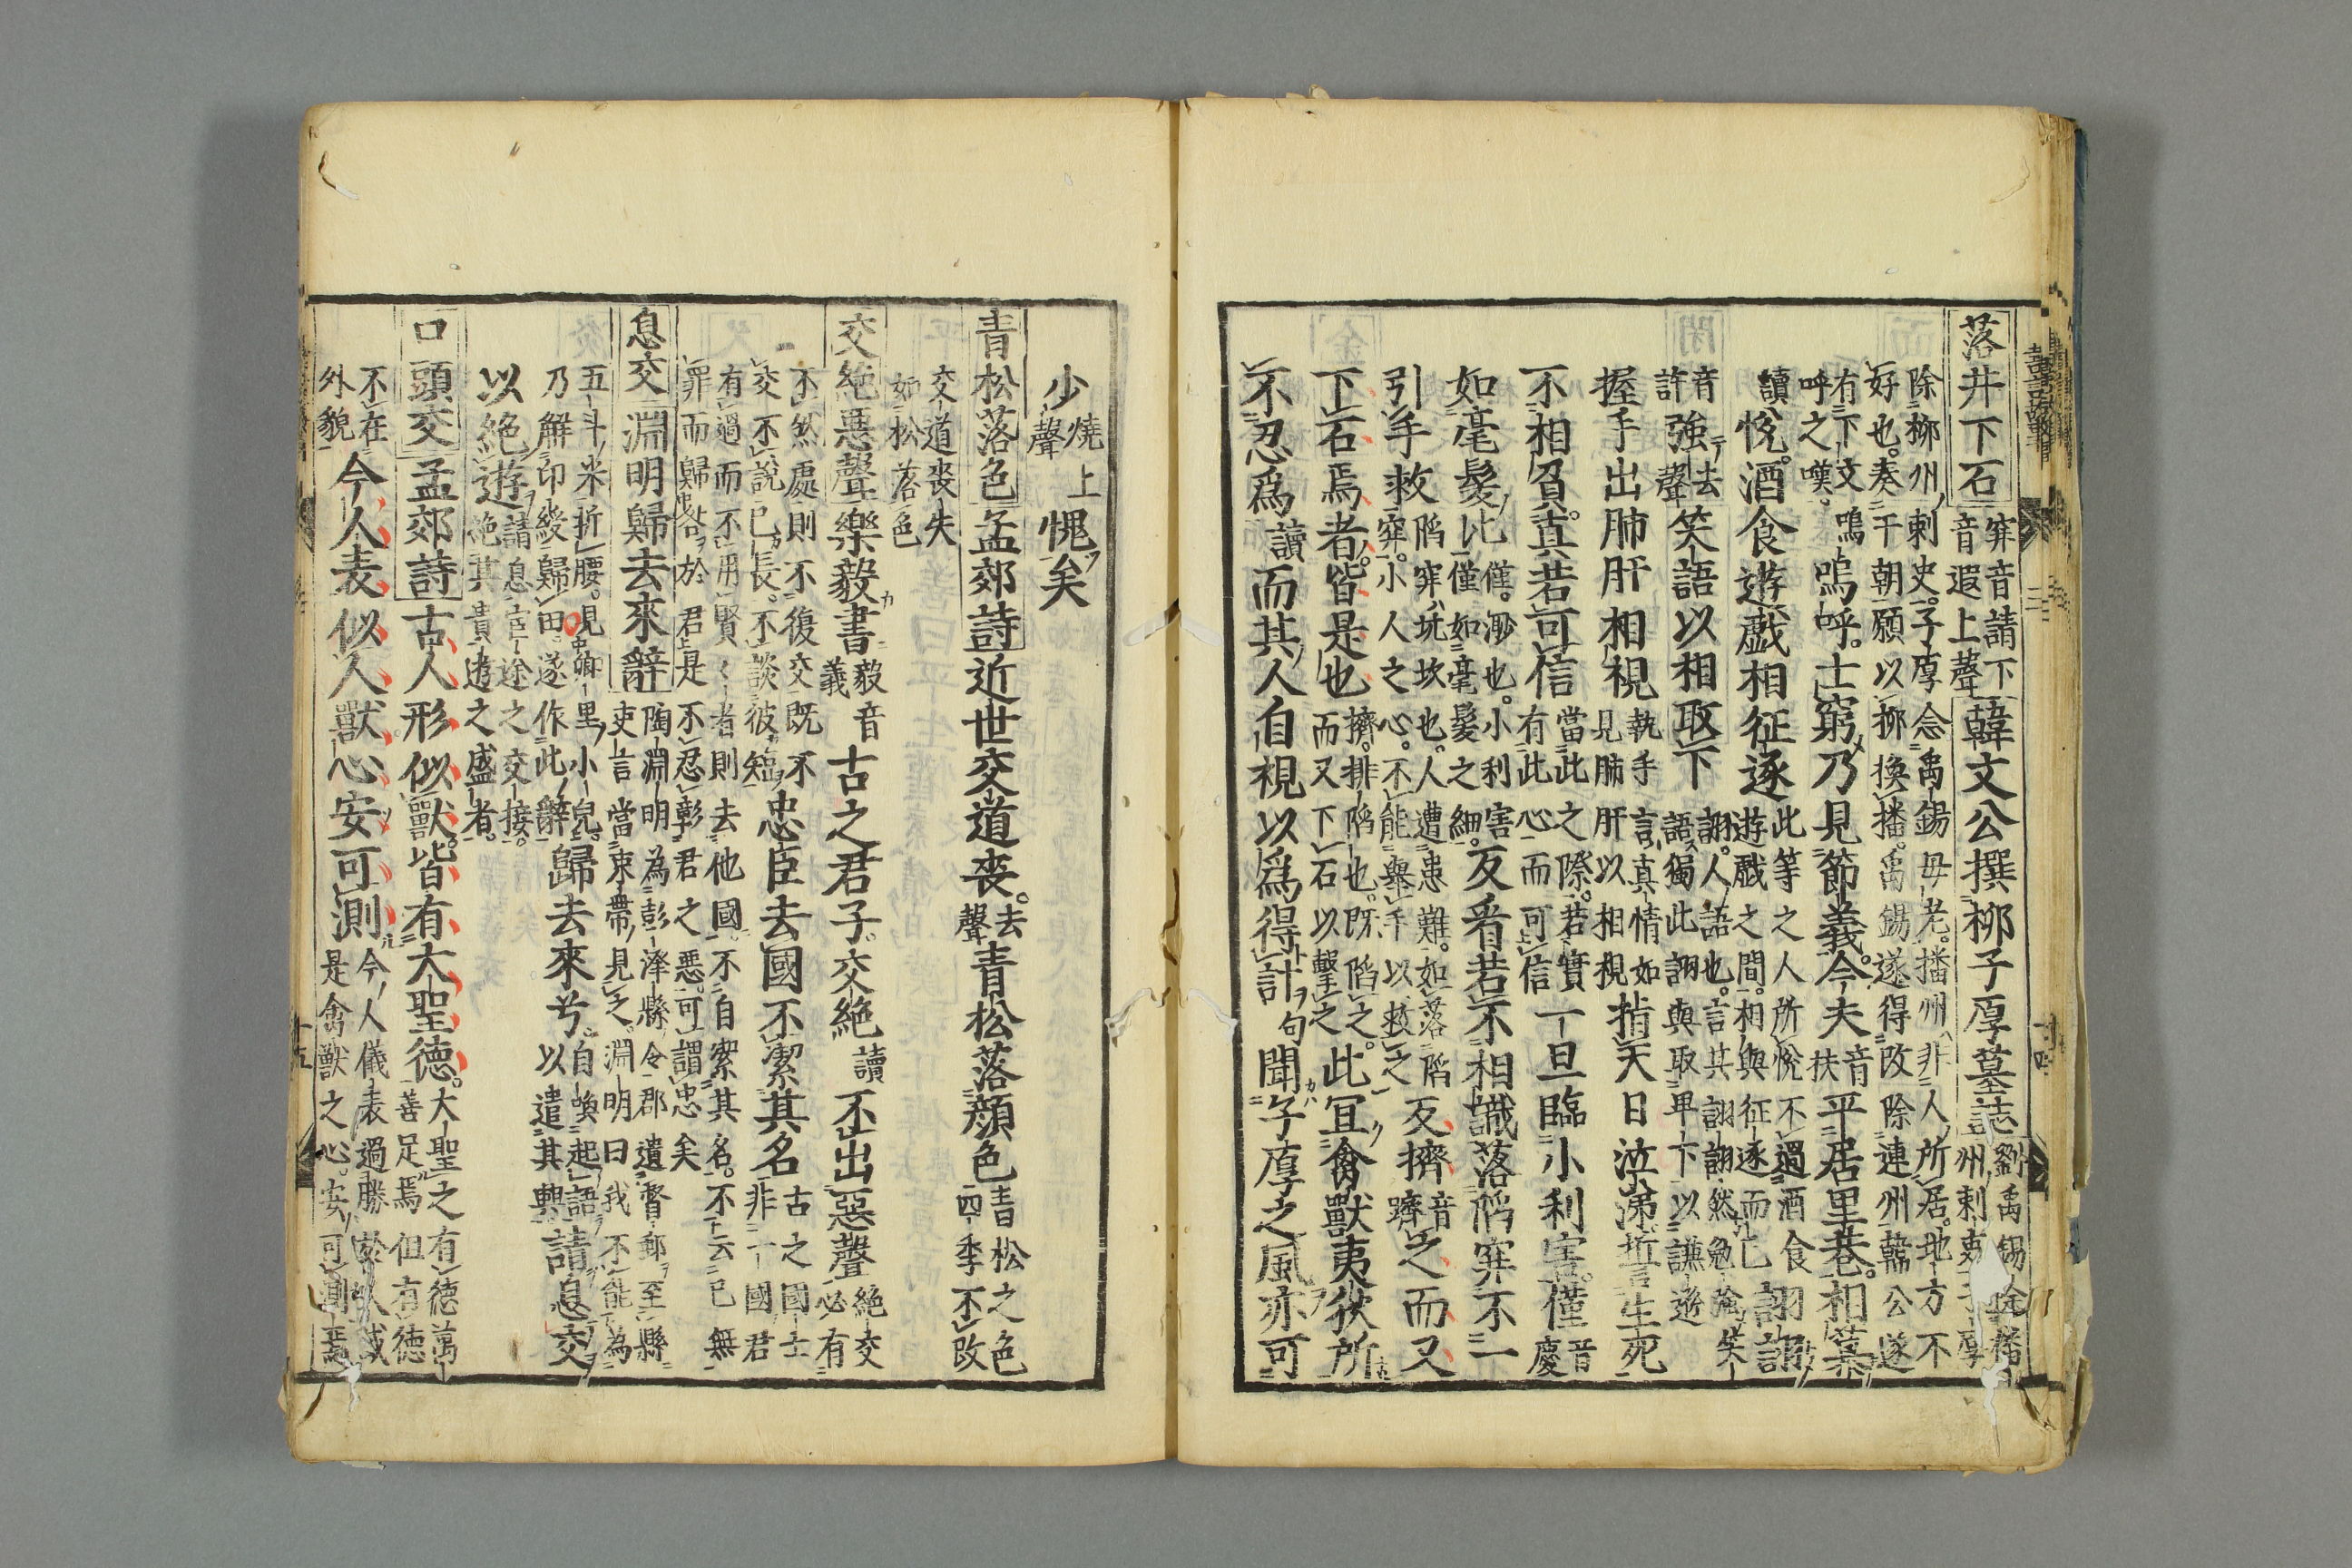 落井下石 穽音請下遐上聲 韓文公撰柳子厚墓誌
除柳州刺史子厚念禹錫母老播州非人所居地方不
好也奏于朝願以柳換播禹錫遂得改除連州韓公遂
有下文嗚呼之嘆 嗚呼士窮乃見節義今夫音扶平居里巷相慕
讀悅酒食遊戲相征逐 此等之人所悅不過酒食遊戲之間相與征逐而已 詡詡
音許強去聲笑語以相取下 詡人語也言其詡詡然勉強笑語獨此詡與取卑下以謙遜
握手出肺肝相視 執手言真情如見肺肝以相視 指天日泣涕誓生死
不相負真若可信 當此之際若實有此心而可信 一旦臨小利害僅音慶
如毫髮比 僅渺也小利害僅如毫髮之細 反看若不相識落陷穽不一
引手救 陷穽坑坎也人遭患難如落陷穽小人之心不能舉手以救之 反擠音躋之而又
下石焉者皆是也 擠排陷也既陷之而又下石以擊之 此宜禽獸夷狄所
不忍為讀而其人自視以為得計句聞子厚之風亦可
少燒上聲愧矣
青松落色 孟郊詩 近世交道喪去聲青松落顏色 青松之色四季不改
交道喪失如松落色
交絕惡聲 樂毅書 毅音義 古之君子交絕讀不出惡聲 絕交必有
不然處則不復交既不交不說己長不談彼短 忠臣去國不潔其名 古之國士非一國君
有過而不用賢賢者則去他國不自潔其名不云己無
罪而歸咎於君是不忍彰君之惡可謂忠矣
息交 淵明歸去來辭 陶淵明為彭澤縣令郡遣督郵至縣吏言當束帶見之淵明曰我不能為
五斗米折腰見鄉里小兒乃解印綬歸田遂作此辭 歸去來兮 自喚起語以遣其興 請息交
以絕遊 請息宦途之交接絕其貴遊之盛者
口頭交 孟郊詩 古人形似獸皆有大聖德 大聖之有德萬善足焉但有德
不在外貌 今人表似人獸心安可測 今人儀表過勝是禽獸之心安可測焉